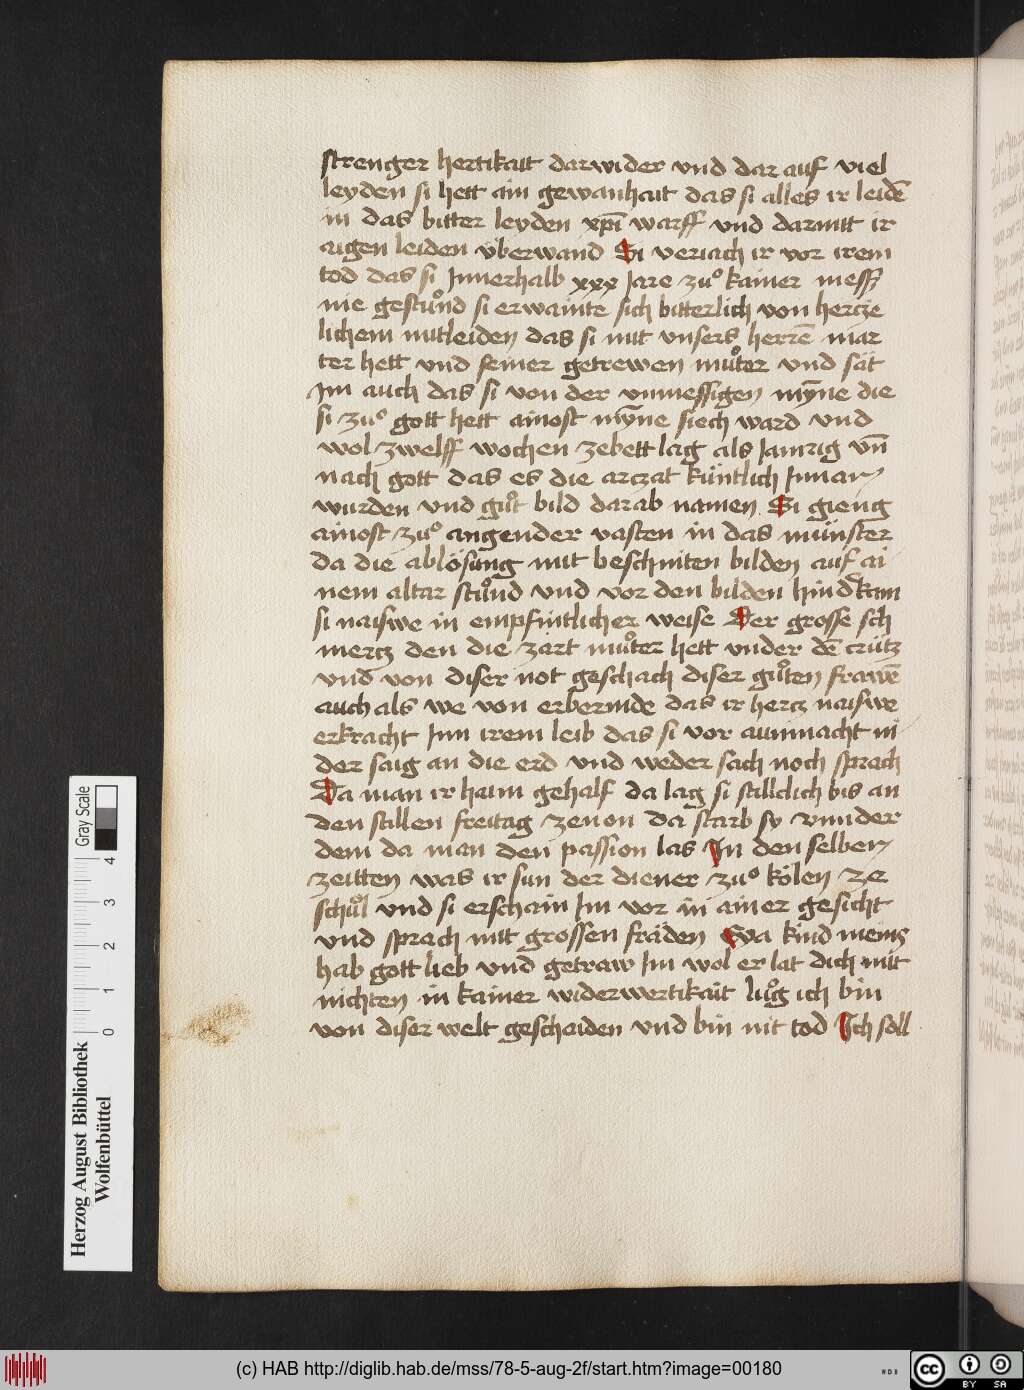 strenger hertikait darwider vnd dar auf viel
leyden si hett ain gewanhait das si alles ir leidē
in das bitter leyden xp̄i warff vnd darmitt ir
aigen leiden v̈berwand Si veriach ir vor irem
tod das si Innerhalb xxx Jare zuͦ kainer mess
nie gestuͦnd si erwainte sich bitterlich von hertze
lichem mitleiden das si mit vnsers herrē mar
ter hett vnd seiner getrewen muͦter vnd sät
Im auch das si von der vnmessigen mÿne die
si zuͦ gott hett ainost mÿne siech ward vnd
wol zwelff wochen zebett lag als Jamrig vn̄
nach gott das es die arczat küntlich Innan
wurden vnd guͦt bild darab namen Si gieng
ainost zuͦ angender vasten in das münster
da die ablösung mit beschniten bilden auf ai
nem altar stuͦnd vnd vor den bilden hind kam
si naiswe in empfintlicher weise Der grosse sch
mercz den die zart muͦter hett vnder dē crütz
vnd von diser not geschach diser guͦten frawē
auch als we von erbermde das ir hercz naiswe
erkracht Jnn irem leib das si vor aunmacht ni
der saig an die erd vnd weder sach noch sprach
Da man ir haim gehalf da lag si stillclich bis an
den stillen freitag ze non da starb sy vnnder
dem da man den passion las In den selben
zeitten was ir sun der diener zuͦ kölen ze
schuͦl vnd si erschain Im vor in ainer gesicht
vnd sprach mit grossen fräden Wa kind meins
hab gott lieb vnd getraw Im wol er lat dich mit
nichten in kainer widerwertikait luͦg ich bin
von diser welt geschaiden vnd bin nit tod Ich soll
Gray Scale
0 1 2 3 4
Herzog August Bibliothek
Wolfenbüttel
(c) HAB http://diglib.hab.de/mss/78-5-aug-2f/start.htm?image=00180
WDB
cc BY SA